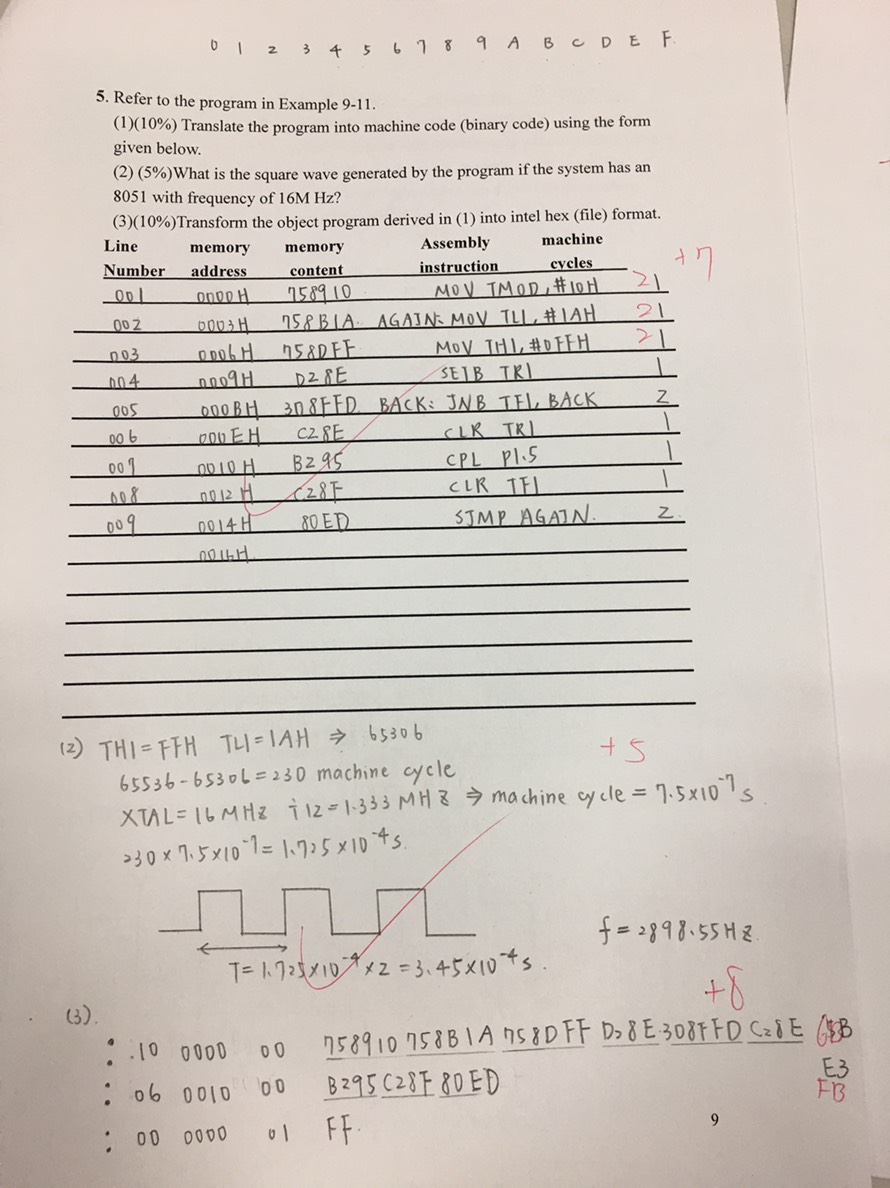 0 1 2 3 4 5 6 7 8 9 A B C D E F
5. Refer to the program in Example 9-11.
(1)(10%) Translate the program into machine code (binary code) using the form
given below.
(2) (5%)What is the square wave generated by the program if the system has an
8051 with frequency of 16M Hz?
(3)(10%)Transform the object program derived in (1) into intel hex (file) format.
Line memory memory Assembly machine
Number address content instruction cycles
+7
001 0000H 758910 MOV TMOD, #10H 2 1
002 0003H 758B1A AGAIN: MOV TL1, #1AH 2 1
003 0006H 758DFF MOV TH1, #0FFH 2 1
004 0009H D28E SETB TR1 1
005 000BH 308FFD BACK: JNB TF1, BACK 2
006 000EH C28E CLR TR1 1
007 0010H B295 CPL P1.5 1
008 0012H C28F CLR TF1 1
009 0014H 80ED SJMP AGAIN. 2
0016H
(2) TH1=FFH TL1=1AH ⇒ 65306
+5
65536-65306=230 machine cycle
XTAL=16MHz ÷12=1.333 MHz ⇒ machine cycle = 7.5×10⁻⁷s
230×7.5×10⁻⁷=1.725×10⁻⁴s.
f=2898.55Hz.
T=1.725×10⁻⁴×2=3.45×10⁻⁴s.
+8
(3).
: 10 0000 00 758910 758B1A 758DFF D28E 308FFD C28E B
E3
: 06 0010 00 B295 C28F 80ED FB
: 00 0000 01 FF.
9